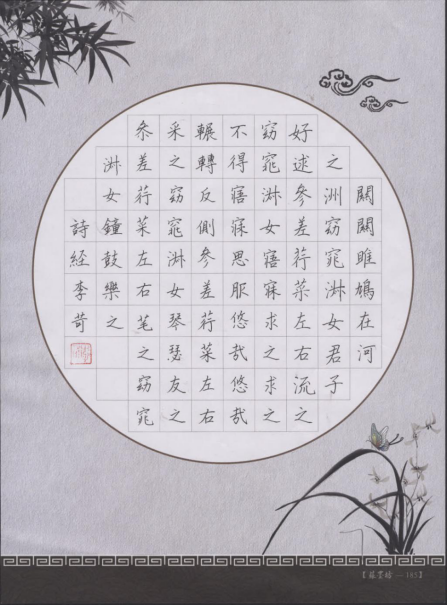 關關雎鳩在河
之洲窈窕淑女君子
好逑參差荇菜左右流之
窈窕淑女寤寐求之求之
不得寤寐思服悠哉悠哉
輾轉反側參差荇菜左右
采之窈窕淑女琴瑟友之
參差荇菜左右芼之窈窕
淑女鐘鼓樂之
詩經李苛
185